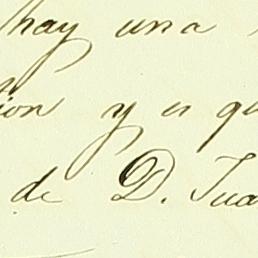 hay una
ion y es qu
de D. Jua